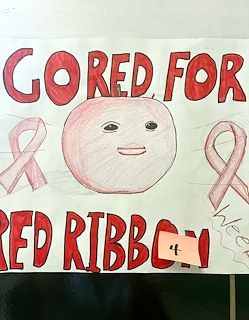 GO RED, FOR
RED RIBBON
4
Week